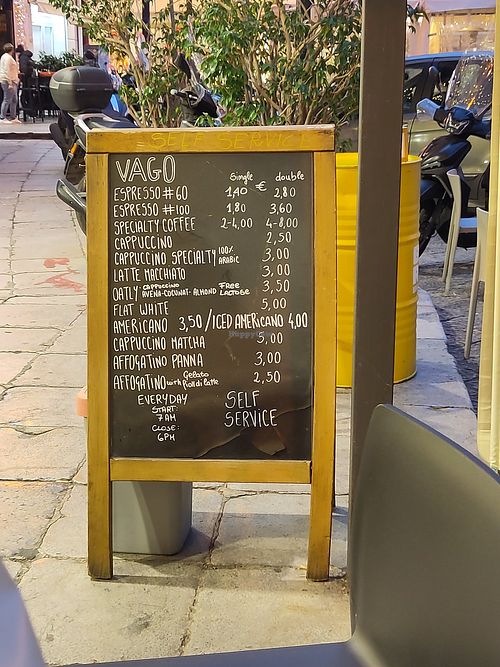 SELF SERVICE
VAGO
Single € double
ESPRESSO #60 1,40 2,80
ESPRESSO #100 1,80 3,60
SPECIALTY COFFEE 2-4,00 4-8,00
CAPPUCCINO 2,50
CAPPUCCINO SPECIALTY 100% ARABIC 3,00
LATTE MACCHIATO 3,00
OATLY CAPPUCCINO AVENA-COCUNAT-ALMOND FREE LACTOSE 3,50
FLAT WHITE 5,00
AMERICANO 3,50/ICED AMERICANO 4,00
CAPPUCCINO MATCHA 5,00
AFFOGATINO PANNA 3,00
AFFOGATINO with Gelato Fior di latte 2,50
EVERYDAY
START:
7AM
CLOSE:
6PM
SELF
SERVICE